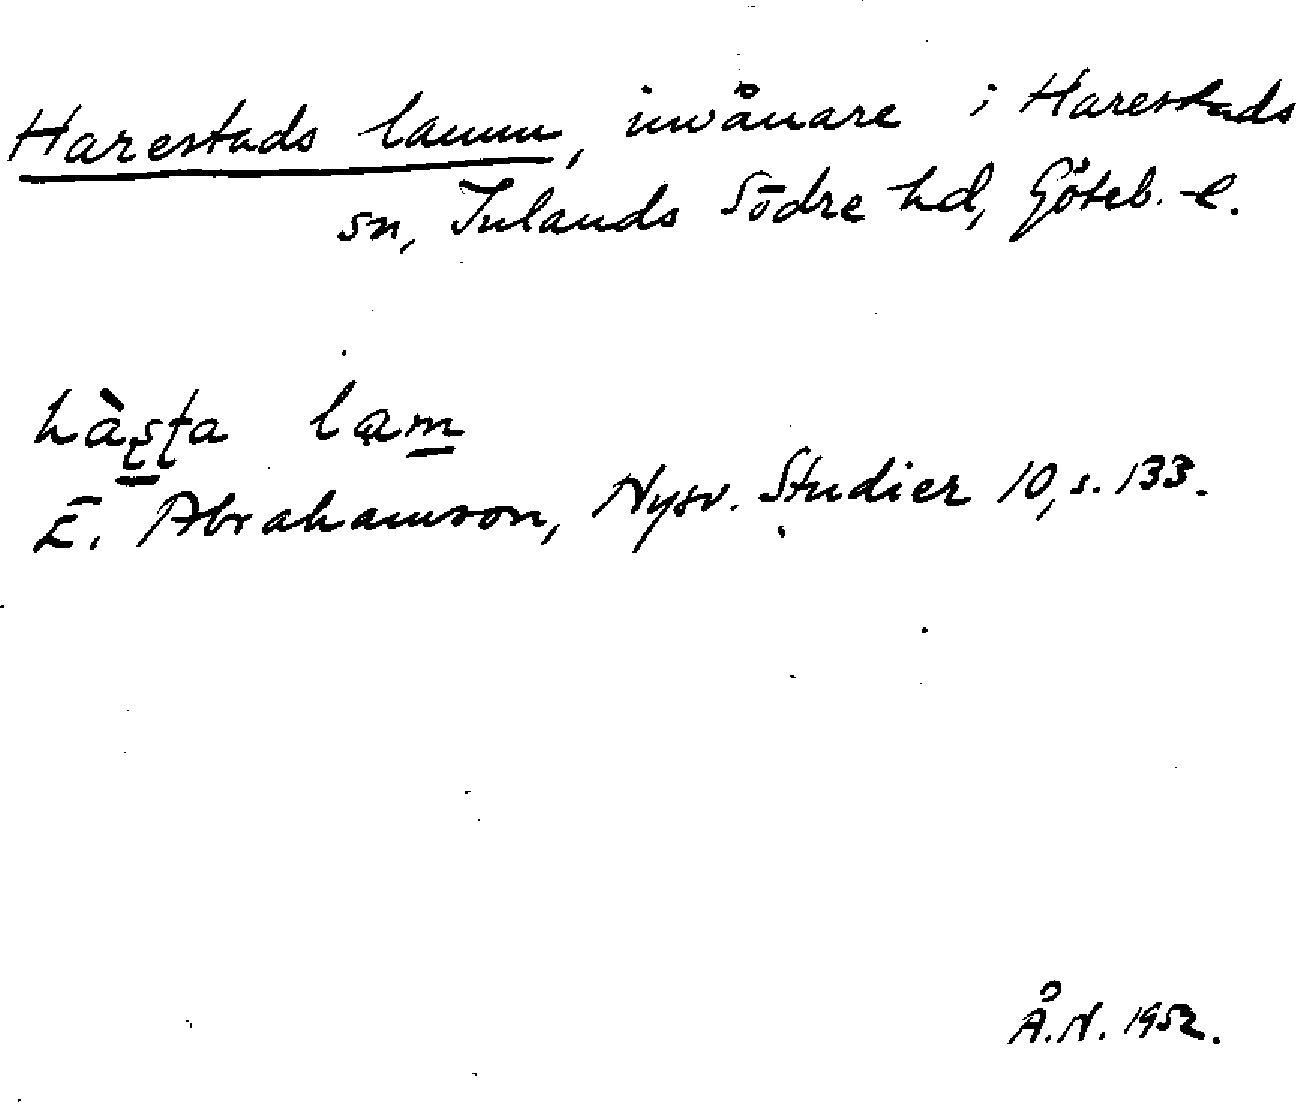 Harestads lamm, invånare i Harestads
sn, Inlands Södre hd, Göteb. l.
hàʂʈa lam
E. Abrahamson, Nysv. Studier 10, s. 133.
Å.N. 1952.